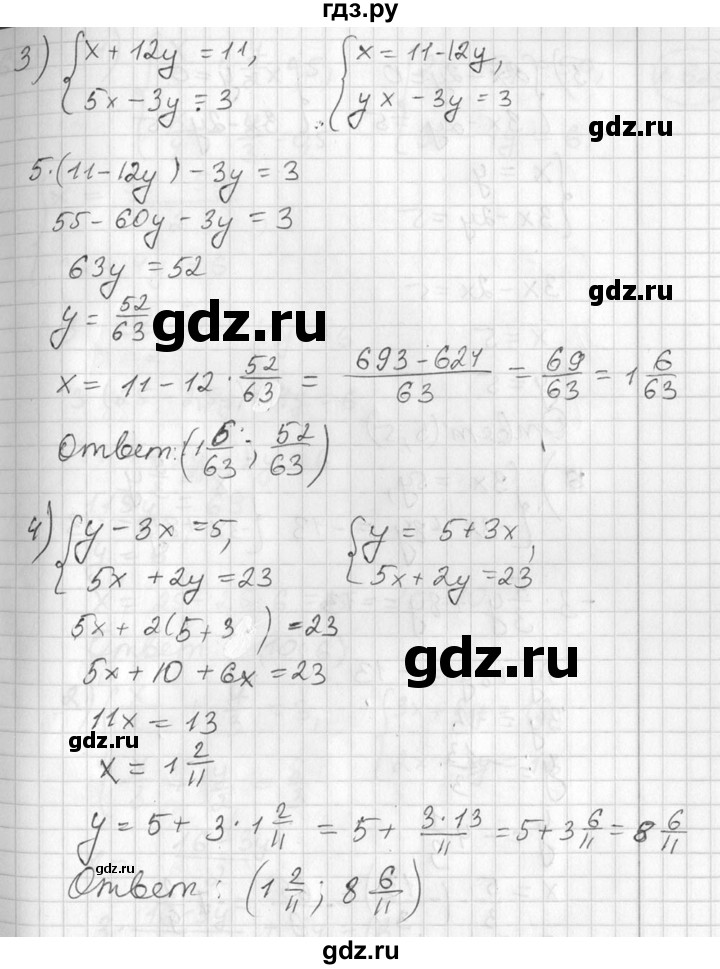 гдз.ру
3) { x + 12y = 11, { x = 11 - 12y,
5x - 3y = 3 yx - 3y = 3
gdz.ru
5·(11 - 12y) - 3y = 3
55 - 60y - 3y = 3
63y = 52
gdz.ru
y = 52/63
gdz.ru
x = 11 - 12 · 52/63 = (693 - 624)/63 = 69/63 = 1 6/63
Ответ: (1 6/63; 52/63)
4) { y - 3x = 5, { y = 5 + 3x,
5x + 2y = 23 5x + 2y = 23
5x + 2(5 + 3 ) = 23
5x + 10 + 6x = 23
gdz.ru
11x = 13
gdz.ru
x = 1 2/11
y = 5 + 3 · 1 2/11 = 5 + 3·13/11 = 5 + 3 6/11 = 8 6/11
gdz.ru
Ответ: (1 2/11; 8 6/11)
gdz.ru